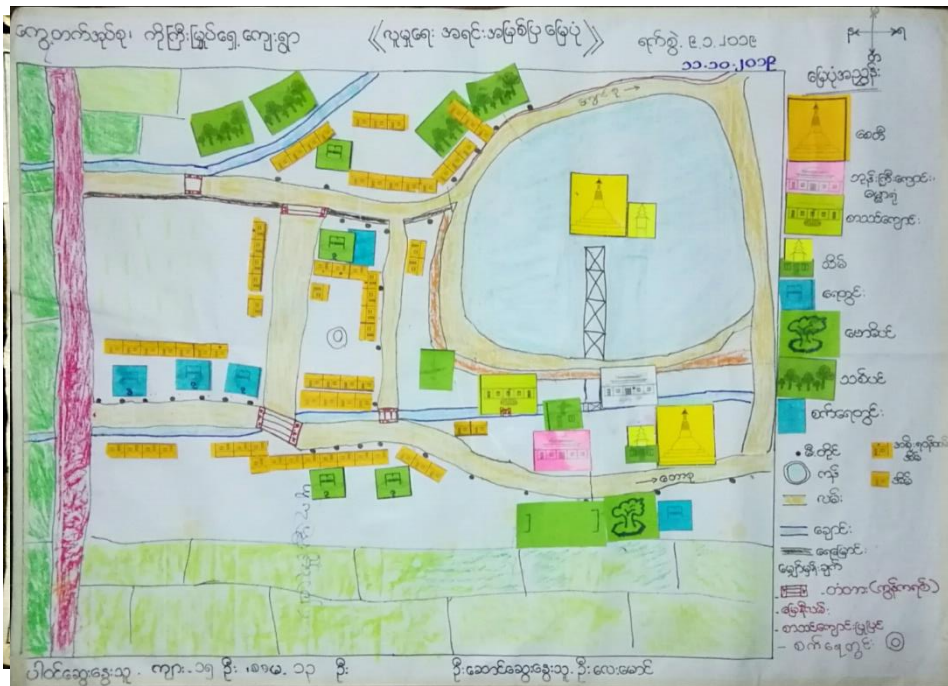 ကွေ့တက်အုပ်စု၊ ကိုကြီးမြှုပ်ရှေ့ကျေးရွာ
《လူမှုရေး အရင်းအမြစ်ပြ မြေပုံ》
ရက်စွဲ. ၉.၁.၂၀၁၉
၁၁.၁၀.၂၀၁၉
မြေပုံအညွှန်း
စေတီ
ဘုန်းကြီးကျောင်း၊
စာသင်ကျောင်း
သိမ်
ရေတွင်း
ဗောဓိပင်
သစ်ပင်
စက်ရေတွင်း
မီးတိုင်
ကန်
အိမ်
လမ်း
ချောင်း
ရေမြောင်း
မျှော်မှန်းချက်
- တံတား(ကွန်ကရစ်)
- မြေနီလမ်း
- စာသင်ကျောင်းပြုပြင်
- စက်ရေတွင်း
→ တောင်
ပါဝင်ဆွေးနွေးသူ - ကျား - ၁၅ ဦး၊ မ - ၁၃ ဦး
ဦးဆောင်ဆွေးနွေးသူ - ဦးလေးမောင်